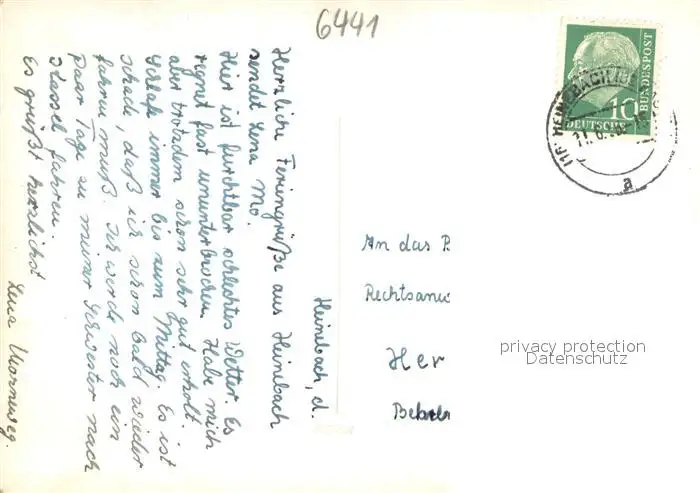 6441
Heimbach, d.
Herzliche Feriengrüße aus Heimbach
sendet Lena Mo.
Hier ist furchtbar schlechtes Wetter. Es
regnet fast ununterbrochen. Habe mich
aber trotzdem schon sehr gut erholt.
Schlafe immer bis zum Mittag. Es ist
schade, daß ich schon bald wieder
fahren muß. Ich werde noch ein
paar Tage zu meiner Schwester nach
Kassel fahren.
Es grüßt herzlichst
Lena
DEUTSCHE
BUNDESPOST
10
a
An das
Rechtsanw
Her
privacy protection
Datenschutz